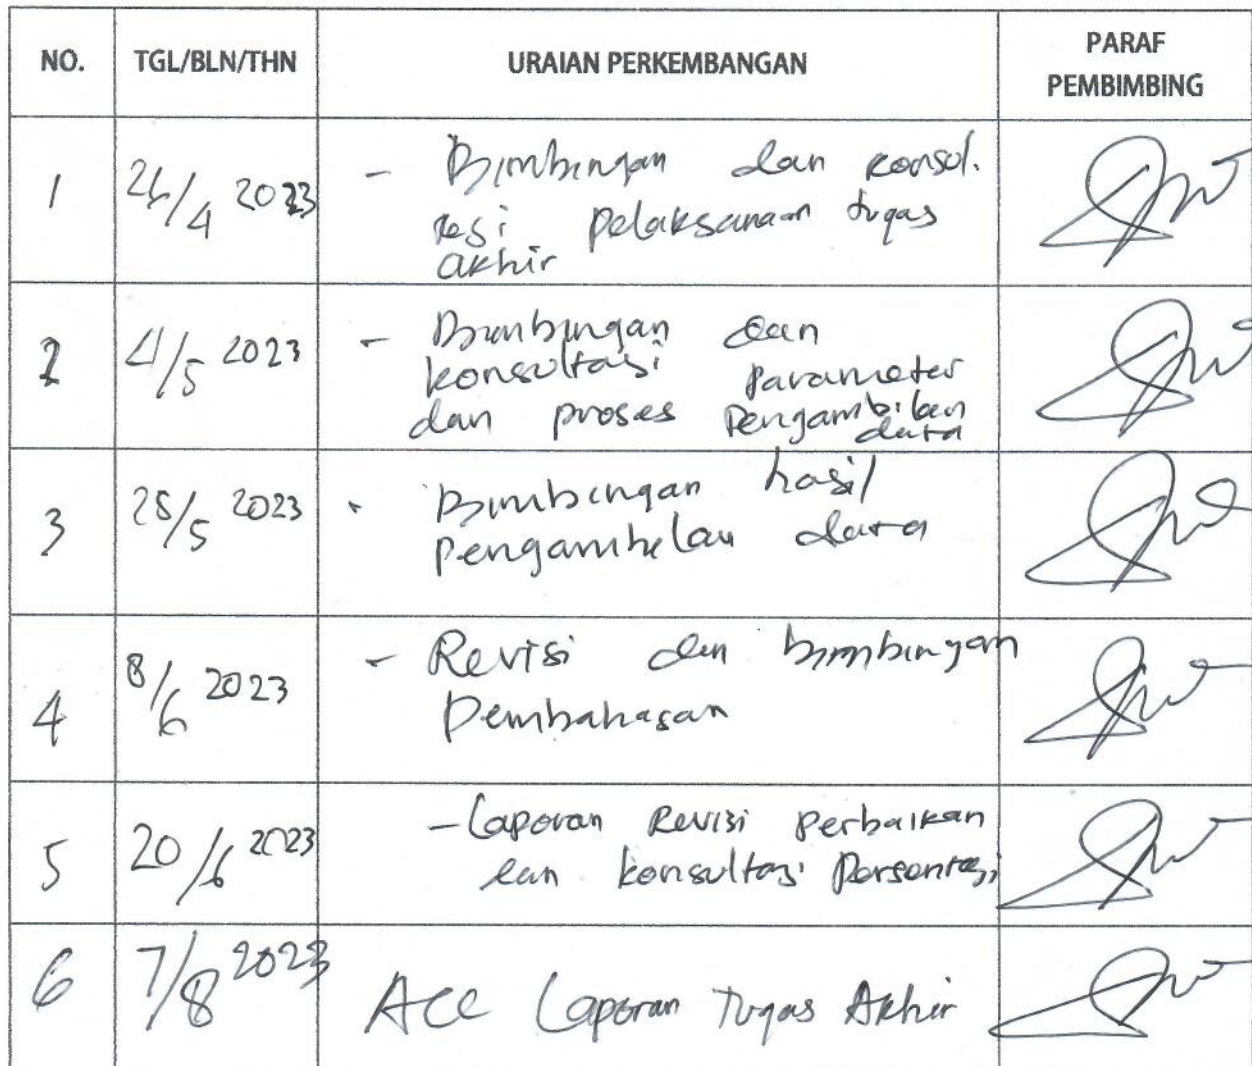 NO. TGL/BLN/THN URAIAN PERKEMBANGAN PARAF
PEMBIMBING
1 /4 2023 - Bimbingan dan konsul.
tasi pelaksanaan tugas
akhir
2 4/5 2023 - Bimbingan dan
konsultasi parameter
dan proses pengambilan
data
3 25/5 2023 - Bimbingan hasil
pengambilan data
4 8/6 2023 - Revisi dan bimbingan
Pembahasan
5 20/6 2023 - Laporan Revisi perbaikan
dan konsultasi Persentasi
6 7/8 2023 Acc Laporan Tugas Akhir